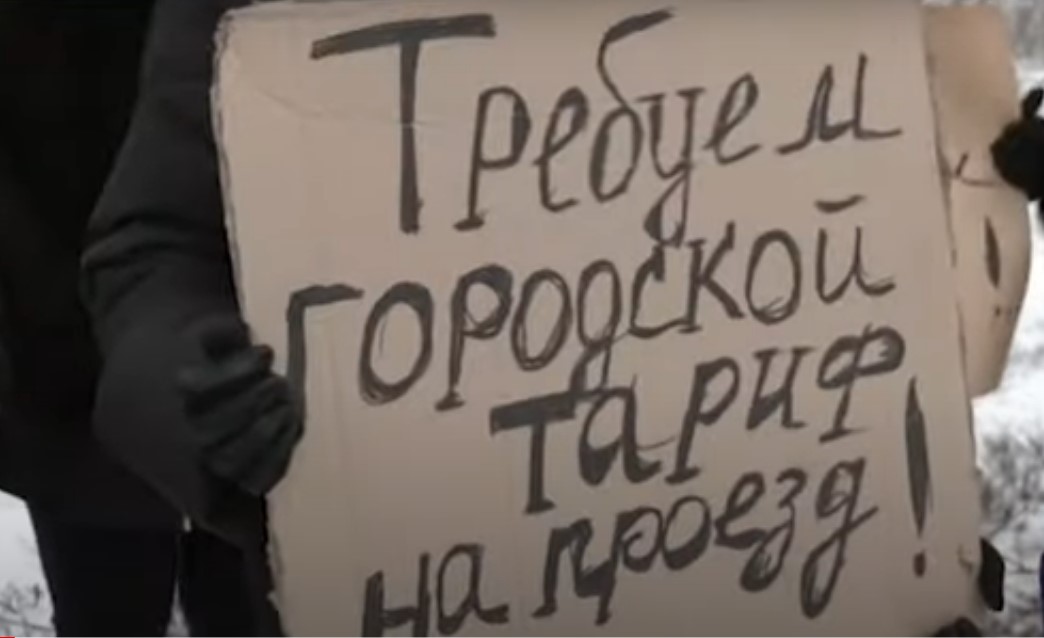 Требуем
городской
тариф
на проезд!